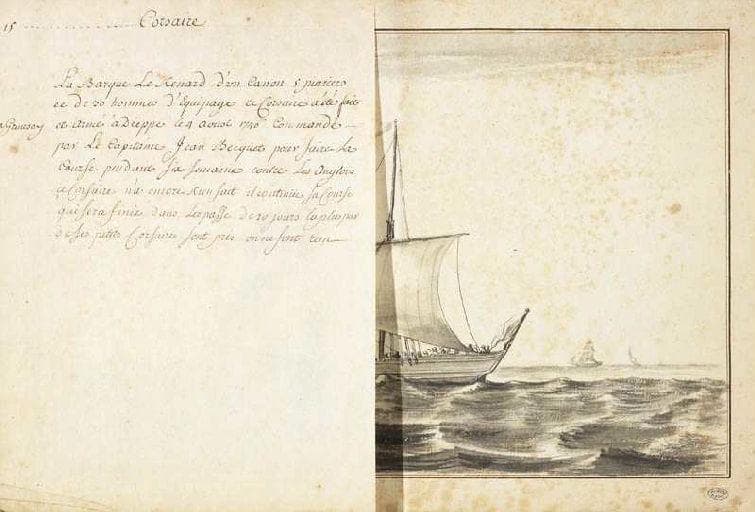 15 Corsaire
La Barque Le Renard d'un Canon 5 pierriers
et de 20 hommes d'Equipage ce Corsaire a été fait
et armé a Dieppe le 4 aoust Commandé
par Le Capitaine Jean Becquet pour faire La
Course pendant Six semaine contre Les Anglois
ce Corsaire n'a encore Rien fait il continüe sa Course
qui sera finie dans de 20 jours la plus par
petits Corsaire sont pris ou ne font rien